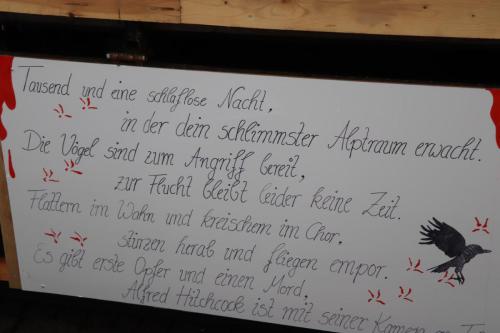 Tausend und eine schlaflose Nacht,
in der dein schlimmster Alptraum erwacht.
Die Vögel sind zum Angriff bereit,
zur Flucht bleibt leider keine Zeit.
Flattern im Wahn und kreischem im Chor,
stürzen herab und fliegen empor.
Es gibt erste Opfer und einen Mord,
Alfred Hitchcock ist mit seiner Kamera